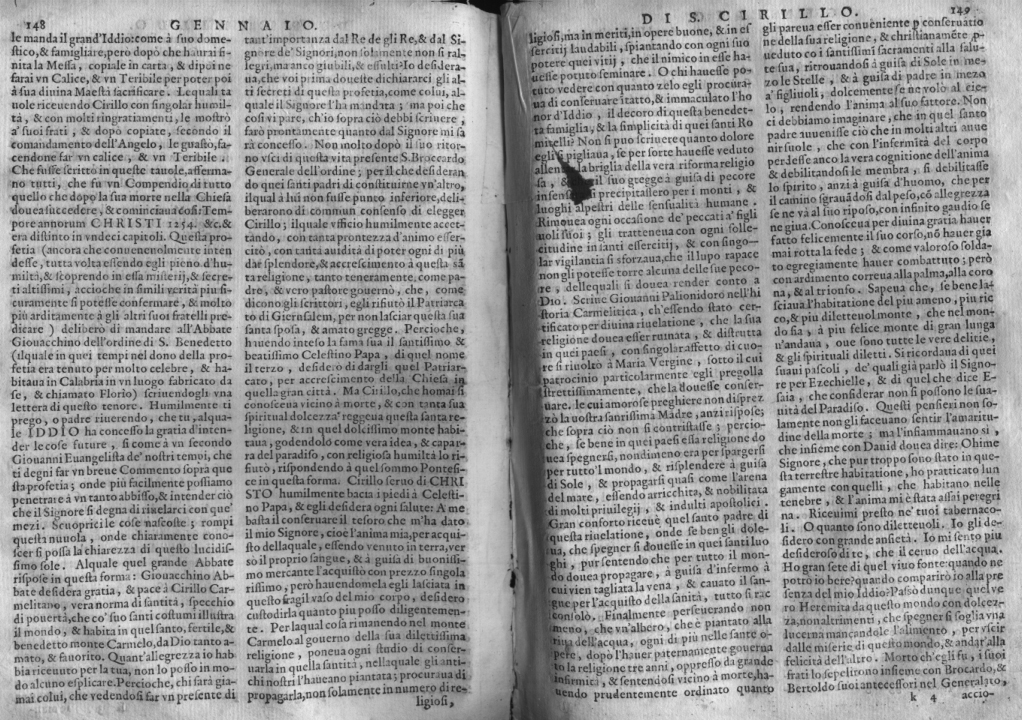 148
GENNAIO.
le manda il grand'Iddio: come à suo dome-
stico, & famigliare, però dopò che haurai fi-
nita la Messa, copiale in carta, & dipoi ne
farai vn Calice, & vn Teribile per poter poi
à sua diuina Maestà sacrificare. Lequali ta
uole riceuendo Cirillo con singolar humil-
tà, & con molti ringratiamenti, le mostrò
a' suoi frati, & dopò copiate, secondo il
comandamento dell'Angelo, le guasto, fa-
cendone far vn calice, & vn Teribile.
Che fusse scritto in queste tauole, afferma-
no tutti, che fu vn Compendio di tutto
quello che dopo la sua morte nella Chiesa
douea succedere, & cominciaua così: Tem-
pore annorum CHRISTI 1254. &c. &
era distinto in vndeci capitoli. Questa pro-
fetia (ancora che conueneuolmente inten
desse, tutta volta essendo egli pieno d'hu-
miltà, & scoprendo in essa misterij, & secre-
ti altissimi, accioche in simili verità piu si-
curamente si potesse confermare, & molto
più arditamente à gli altri suoi fratelli pre-
dicare) deliberò di mandare all'Abbate
Giouacchino dell'ordine di S. Benedetto
(ilquale in quei tempi nel dono della pro-
fetia era tenuto per molto celebre, & ha-
bitaua in Calabria in vn luogo fabricato da
se, & chiamato Florio) scriuendogli vna
lettera di questo tenore. Humilmente ti
prego, o padre riuerendo, che tu, alqua-
le IDDIO ha concesso la gratia d'inten-
der le cose future, si come à vn secondo
Giouanni Euangelista de' nostri tempi, che
ti degni far vn breue Commento sopra que
sta profetia; onde più facilmente possiamo
penetrare à vn tanto abbisso, & intender ciò
che il Signore si degna di riuelarci con que'
mezi. Scuoprici le cose nascoste; rompi
questa nuuola, onde chiaramente cono-
scer si possa la chiarezza di questo lucidis-
simo sole. Alquale quel grande Abbate
rispose in questa forma: Giouacchino Ab-
bate desidera gratia, & pace à Cirillo Car-
melitano, vera norma di santità, specchio
di pouertà, che co' suo santi costumi illustra
il mondo, & habita in quel santo, fertile, &
benedetto monte Carmelo, da Dio tanto a-
mato, & fauorito. Quant'allegrezza io hab
bia riceuuto per la tua, non lo posso in mo-
do alcuno esplicare. Percioche, chi sarà gia-
mai colui, che vedendosi far vn presente di
tant'importanza dal Re de gli Re, & dal Si-
gnore de' Signori, non solamente non si ral-
legri, ma anco giubili, & essulti? Io desidera-
ua, che voi prima doueste dichiararci gli al-
ti secreti di questa profetia, come colui, al-
quale il Signore l'ha mandata; ma poi che
così vi pare, ch'io sopra ciò debbi scriuere,
farò prontamente quanto dal Signore mi sa
rà concesso. Non molto dopò il suo ritor-
no vscì di questa vita presente S. Broccardo
Generale dell'ordine; per il che desideran
do quei santi padri di constituirne vn'altro,
ilqual à lui non fusse punto inferiore, deli-
berarono di commun consenso di elegger
Cirillo; ilquale vfficio humilmente accet-
tando, con tanta prontezza d'animo esser-
citò, con tanta auidità di poter ogni di più
dar splendore, & accrescimento à questa sã
ta religione, tanto teneramente, come pa-
dre, & vero pastore gouernò, che, come
dicono gli scrittori, egli rifiutò il Patriarca
to di Gierusalem, per non lasciar questa sua
santa sposa, & amato gregge. Percioche,
hauendo inteso la fama sua il santissimo &
beatissimo Celestino Papa, di quel nome
il terzo, desiderò dargli quel Patriar-
cato, per accrescimento della Chiesa in
quella gran città. Ma Cirillo, che homai si
conosceua vicino à morte, & con tanta sua
spiritual dolcezza reggeua questa santa re-
ligione, & in quel dolcissimo monte habi-
taua, godendolo come vera idea, & capar-
ra del paradiso, con religiosa humiltà lo ri-
fiutò, rispondendo à quel sommo Pontefi-
ce in questa forma. Cirillo seruo di CHRI
STO humilmente bacia i piedi à Celesti-
no Papa, & egli desidera ogni salute: A me
basta il conseruare il tesoro che m'ha dato
il mio Signore, cioè l'anima mia, per acqui-
sto dellaquale, essendo venuto in terra, ver
sò il proprio sangue, & à guisa di buonissi-
mo mercante l'acquistò con prezzo singola
rissimo, però hauendomela egli lasciata in
questo fragil vaso del mio corpo, desidero
custodirla quanto piu posso diligentemen-
te. Per laqual cosa rimanendo nel monte
Carmelo al gouerno della sua dilettissima
religione, poneua ogni studio di conser-
uarla in quella santità, nellaquale gli anti-
chi nostri l'haueano piantata; procuraua di
propagarla, non solamente in numero di re-
ligiosi,
DI S. CIRILLO.
149
ligiosi, ma in meriti, in opere buone, & in es
serciij laudabili, spiantando con ogni suo
potere quei vitij, che il nimico in esse ha-
uesse potuto seminare. O chi hauesse po-
tuto vedere con quanto zelo egli procura-
ua di conseruare itatto, & immaculato l'ho
nor d'Iddio, il decoro di questa benedet-
ta famiglia, & la simplicità di quei santi Ro
mitelli? Non si può scriuere quanto dolore
egli si pigliaua, se per sorte hauesse veduto
la briglia della vera riforma religio
sa, & il suo gregge à guisa di pecore
si precipitassero per i monti, &
luoghi alpestri delle sensualità humane.
Rimouea ogni occasione de' peccati a' figli
uoli suoi; gli tratteneua con ogni solle-
citudine in santi essercitij, & con singo-
lar vigilantia si sforzaua, che il lupo rapace
non gli potesse torre alcuna delle sue peco-
re, dellequali si douea render conto à
Dio. Scriue Giouanni Palionidoro nell'hi
storia Carmelitica, ch'essendo stato cer-
tificato per diuina riuelatione, che la sua
religione douea esser ruinata, & distrutta
in quei paesi, con singolar affetto di cuo-
re si riuoltò à Maria Vergine, sotto il cui
patrocinio particolarmente egli pregolla
strettissimamente, che la douesse conser-
uare. le cui amorose preghiere non disprez
zò la nostra santissima Madre, anzi rispose;
che sopra ciò non si contristasse; percio-
che, se bene in quei paesi essa religione do
uea spegnersi, nondimeno era per spargersi
per tutto'l mondo, & risplendere à guisa
di Sole, & propagarsi quasi come l'arena
del mare, essendo arricchita, & nobilitata
di molti priuilegij, & indulti apostolici.
Gran conforto riceuè quel santo padre di
questa riuelatione, onde se ben gli dole-
ua, che spegner si douesse in quei santi luo
ghi, pur sentendo che per tutto il mon-
do douea propagare, à guisa d'infermo à
cui vien tagliata la vena, & cauato il san-
gue per l'acquisto della sanità, tutto si rac
consolò. Finalmente perseuerando non
meno, che vn'albero, che è piantato alla
riua dell'acqua, ogni di più nelle sante o-
pere, dopò l'hauer paternamente gouerna
to la religione tre anni, oppresso da grande
infirmità, & sentendosi vicino à morte, ha-
uendo prudentemente ordinato quanto
gli pareua esser conueniente p conseruatio
ne della sua religione, & christianamẽte p-
ueduto co i santissimi sacramenti alla salu-
te sua, ritrouandosi à guisa di Sole in me-
zo le Stelle, & à guisa di padre in mezo
a' figliuoli, dolcemente se ne volò al cie-
lo, rendendo l'anima al suo fattore. Non
ci debbiamo imaginare, che in quel santo
padre auuenisse ciò che in molti altri auue
nir suole, che con l'infermità del corpo
perdesse anco la vera cognitione dell'anima
& debilitandosi le membra, si debilitasse
lo spirito, anzi à guisa d'huomo, che per
il camino sgrauãdosi dal peso, cõ allegrezza
se ne và al suo riposo, con infinito gaudio se
ne giua. Conosceua per diuina gratia hauer
fatto felicemente il suo corso, nõ hauer gia
mai rotta la fede; & come valoroso solda-
to egregiamente hauer combattuto; però
con ardimento correua alla palma, alla coro
na, & al trionfo. Sapeua che, se bene la-
sciaua l'habitatione del piu ameno, piu ric
co, & piu diletteuol monte, che nel mon-
do sia, à piu felice monte di gran lunga
n'andaua, oue sono tutte le vere delitie,
& gli spirituali diletti. Si ricordaua di quei
suaui pascoli, de' quali già parlò il Signo-
re per Ezechielle, & di quel che dice E-
saia, che considerar non si possono le sua-
uità del Paradiso. Questi pensieri non so-
lamente non gli faceuano sentir l'amaritu-
dine della morte; ma l'infiammauano sì,
che insieme con Dauid douea dire: Ohime
Signore, che pur troppo sono stato in que-
sta terrestre habitatione, ho praticato lun
gamente con quelli, che habitano nelle
tenebre, & l'anima mi è stata assai peregri
na. Riceuimi presto ne' tuoi tabernaco-
li. O quanto sono diletteuoli. Io gli de-
sidero con grande ansietà. Io mi sento piu
desideroso di te, che il ceruo dell'acqua.
Ho gran sete di quel viuo fonte: quando ne
potrò io bere? quando comparirò io alla pre
senza del mio Iddio? Passò dunque quel ve
ro Heremita da questo mondo con dolcez-
za, non altrimenti, che spegner si soglia vna
lucerna mancandole l'alimento, per vscir
dalle miserie di questo mondo, & andar'alla
felicità dell'altro. Morto ch'egli fu, i suoi
frati lo sepelirono insieme con Brocardo, &
Bertoldo suoi antecessori nel Generalato,
k 4
accio-